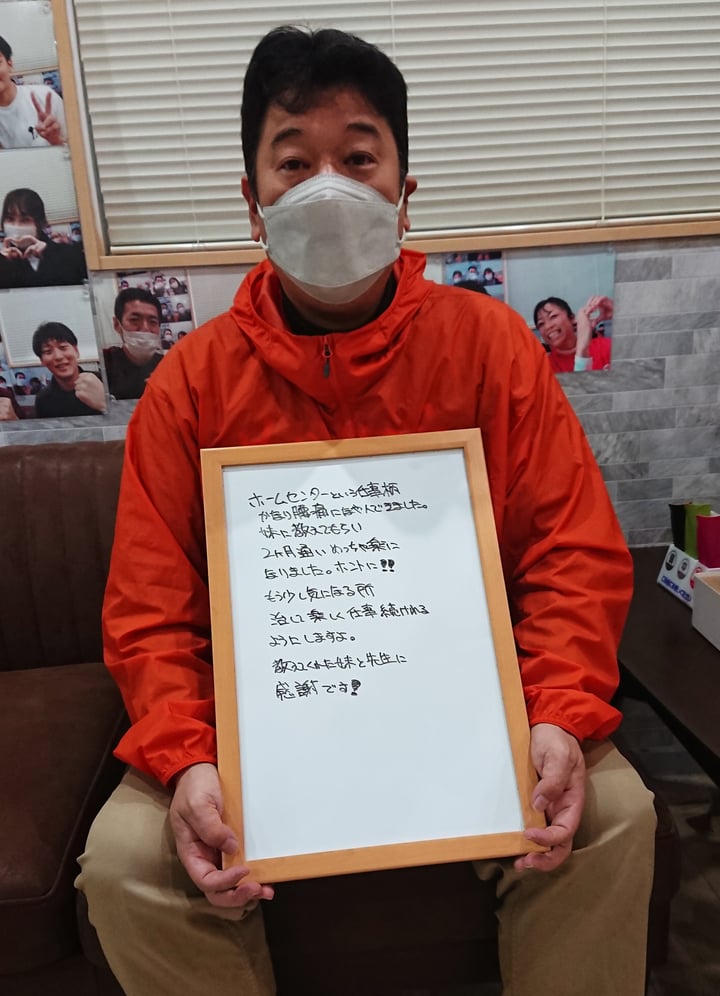 ホームセンターという仕事柄
かなり腰痛になやんできました。
妹に教えてもらい
2ヶ月通いめっちゃ楽に
なりました。ホントに!!
もう少し気になる所
治して楽しく仕事続けれる
ようにしますよ。
教えてくれた妹と先生に
感謝です!